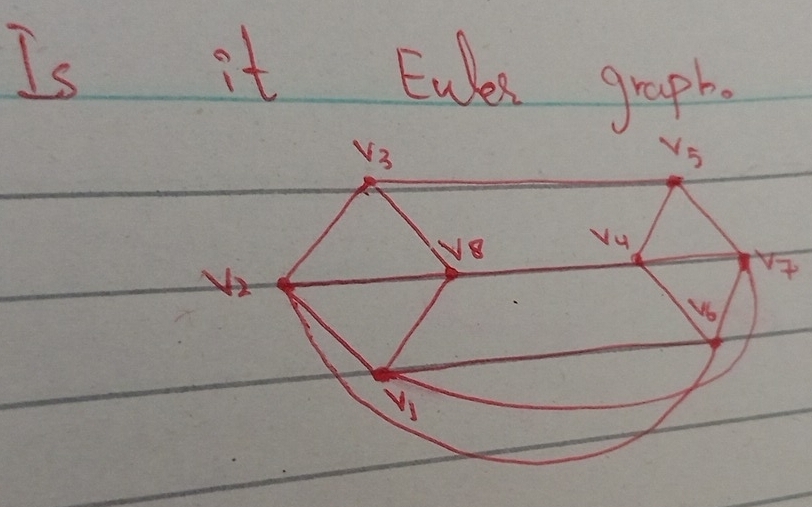 Is it Euler graph.
V3 V5
V8 V4
V2 V7
V6
V1